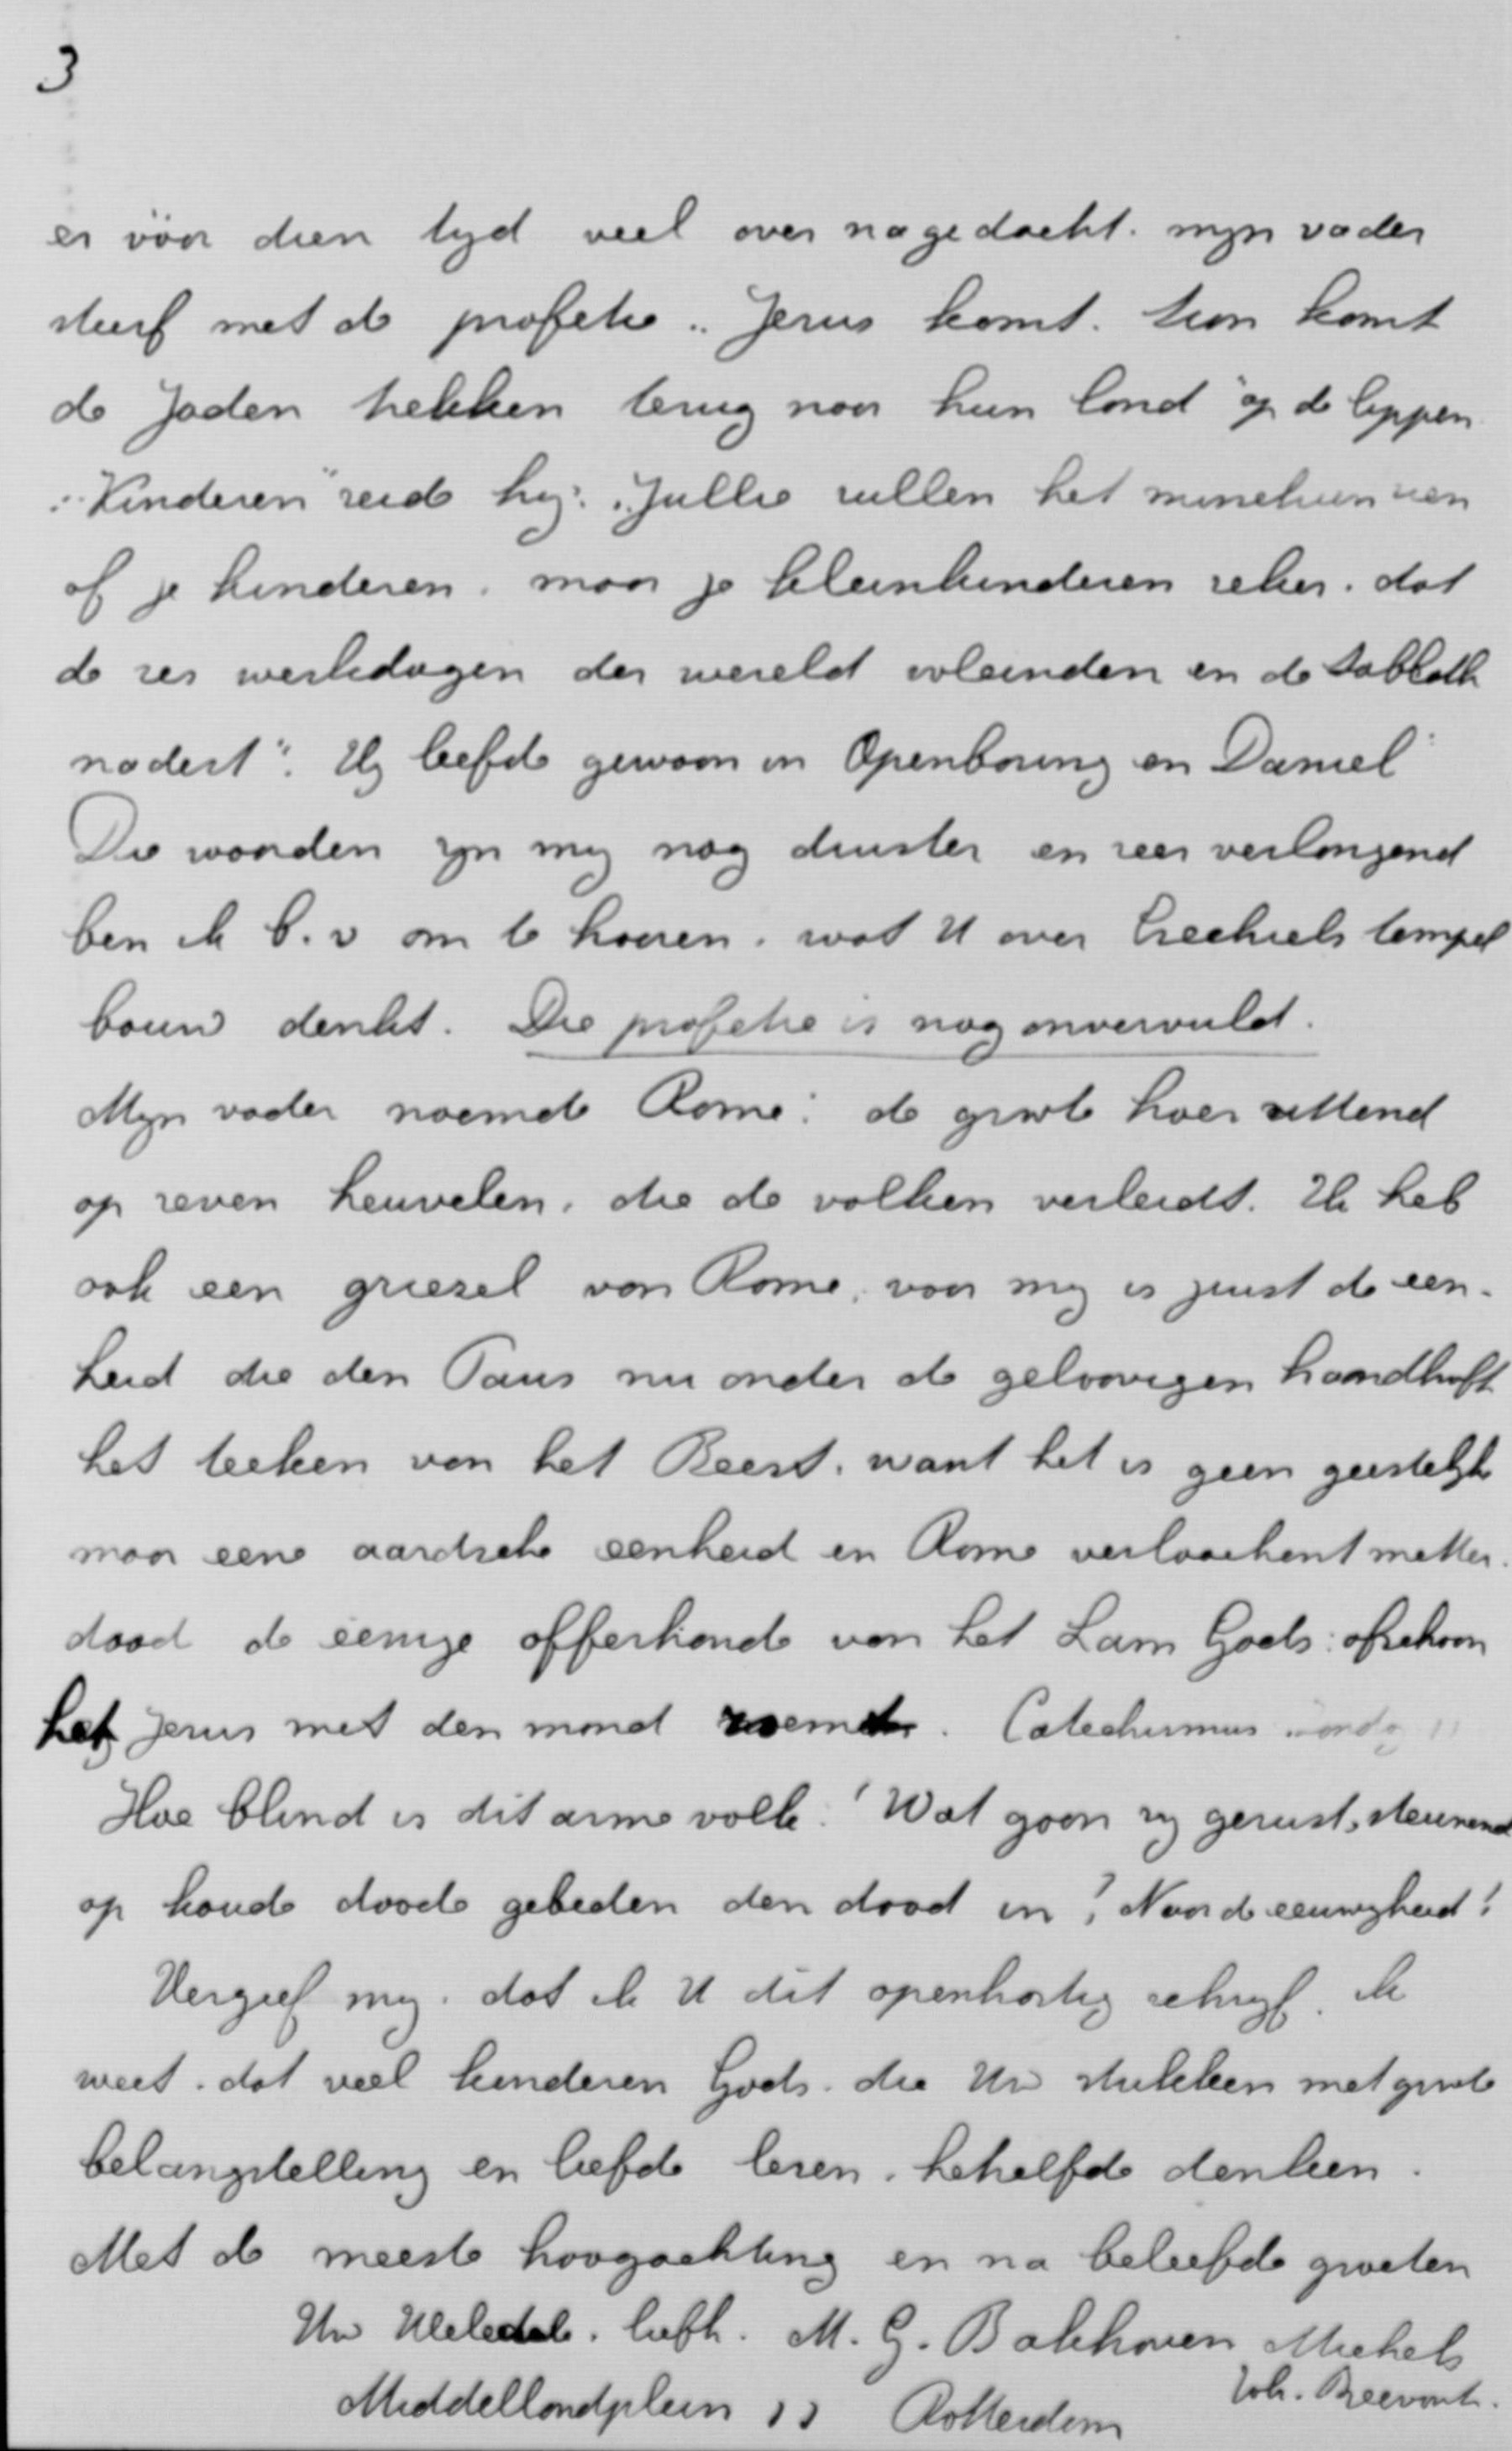 3
er vóór dien tyd veel over nagedacht. myn vader
stierf met de profetie „Jezus komt. komt
de Joden trekken terug naar hun land" op de lippen
„Kinderen" zeide hy: „Jullie zullen het misschien zien
of je kinderen. maar je kleinkinderen zeker. dat
de zes werkdagen der wereld voleinden en de Sabbath
nadert". Hy leefde gewoon in Openbaring en Daniel
Die woorden zyn my nog duister en zeer verlangend
ben ik b.v om te hooren. wat U over Ezechiels tempel
bouw denkt. Die profetie is nog onvervuld.
Myn vader noemde Rome: de groote hoer zittend
op zeven heuvelen. die de volken verleidt. Ik heb
ook een griezel van Rome, voor my is juist de een-
heid die den Paus nu onder de geloovigen handhaft
het teeken van het Beest. want het is geen geestelyke
maar eene aardsche eenheid en Rome verloochent metter-
daad de eenige offerhande van het Lam Gods: ofschoon
het Jezus met den mond roemt. Catechismus
Hoe blind is dit arme volk! Wat gaan zy gerust, steunend
op koude doode gebeden den dood in! Naar de eeuwigheid!
Vergeef my. dat ik U dit openhartig schryf. ik
weet. dat veel kinderen Gods. die Uw stukken met groote
belangstelling en liefde lezen. hetzelfde denken.
Met de meeste hoogachting en na beleefde groeten
Uw WelEdele. liefh. M. G. Bakhoven Michels
Middellandplein 11 Rotterdam